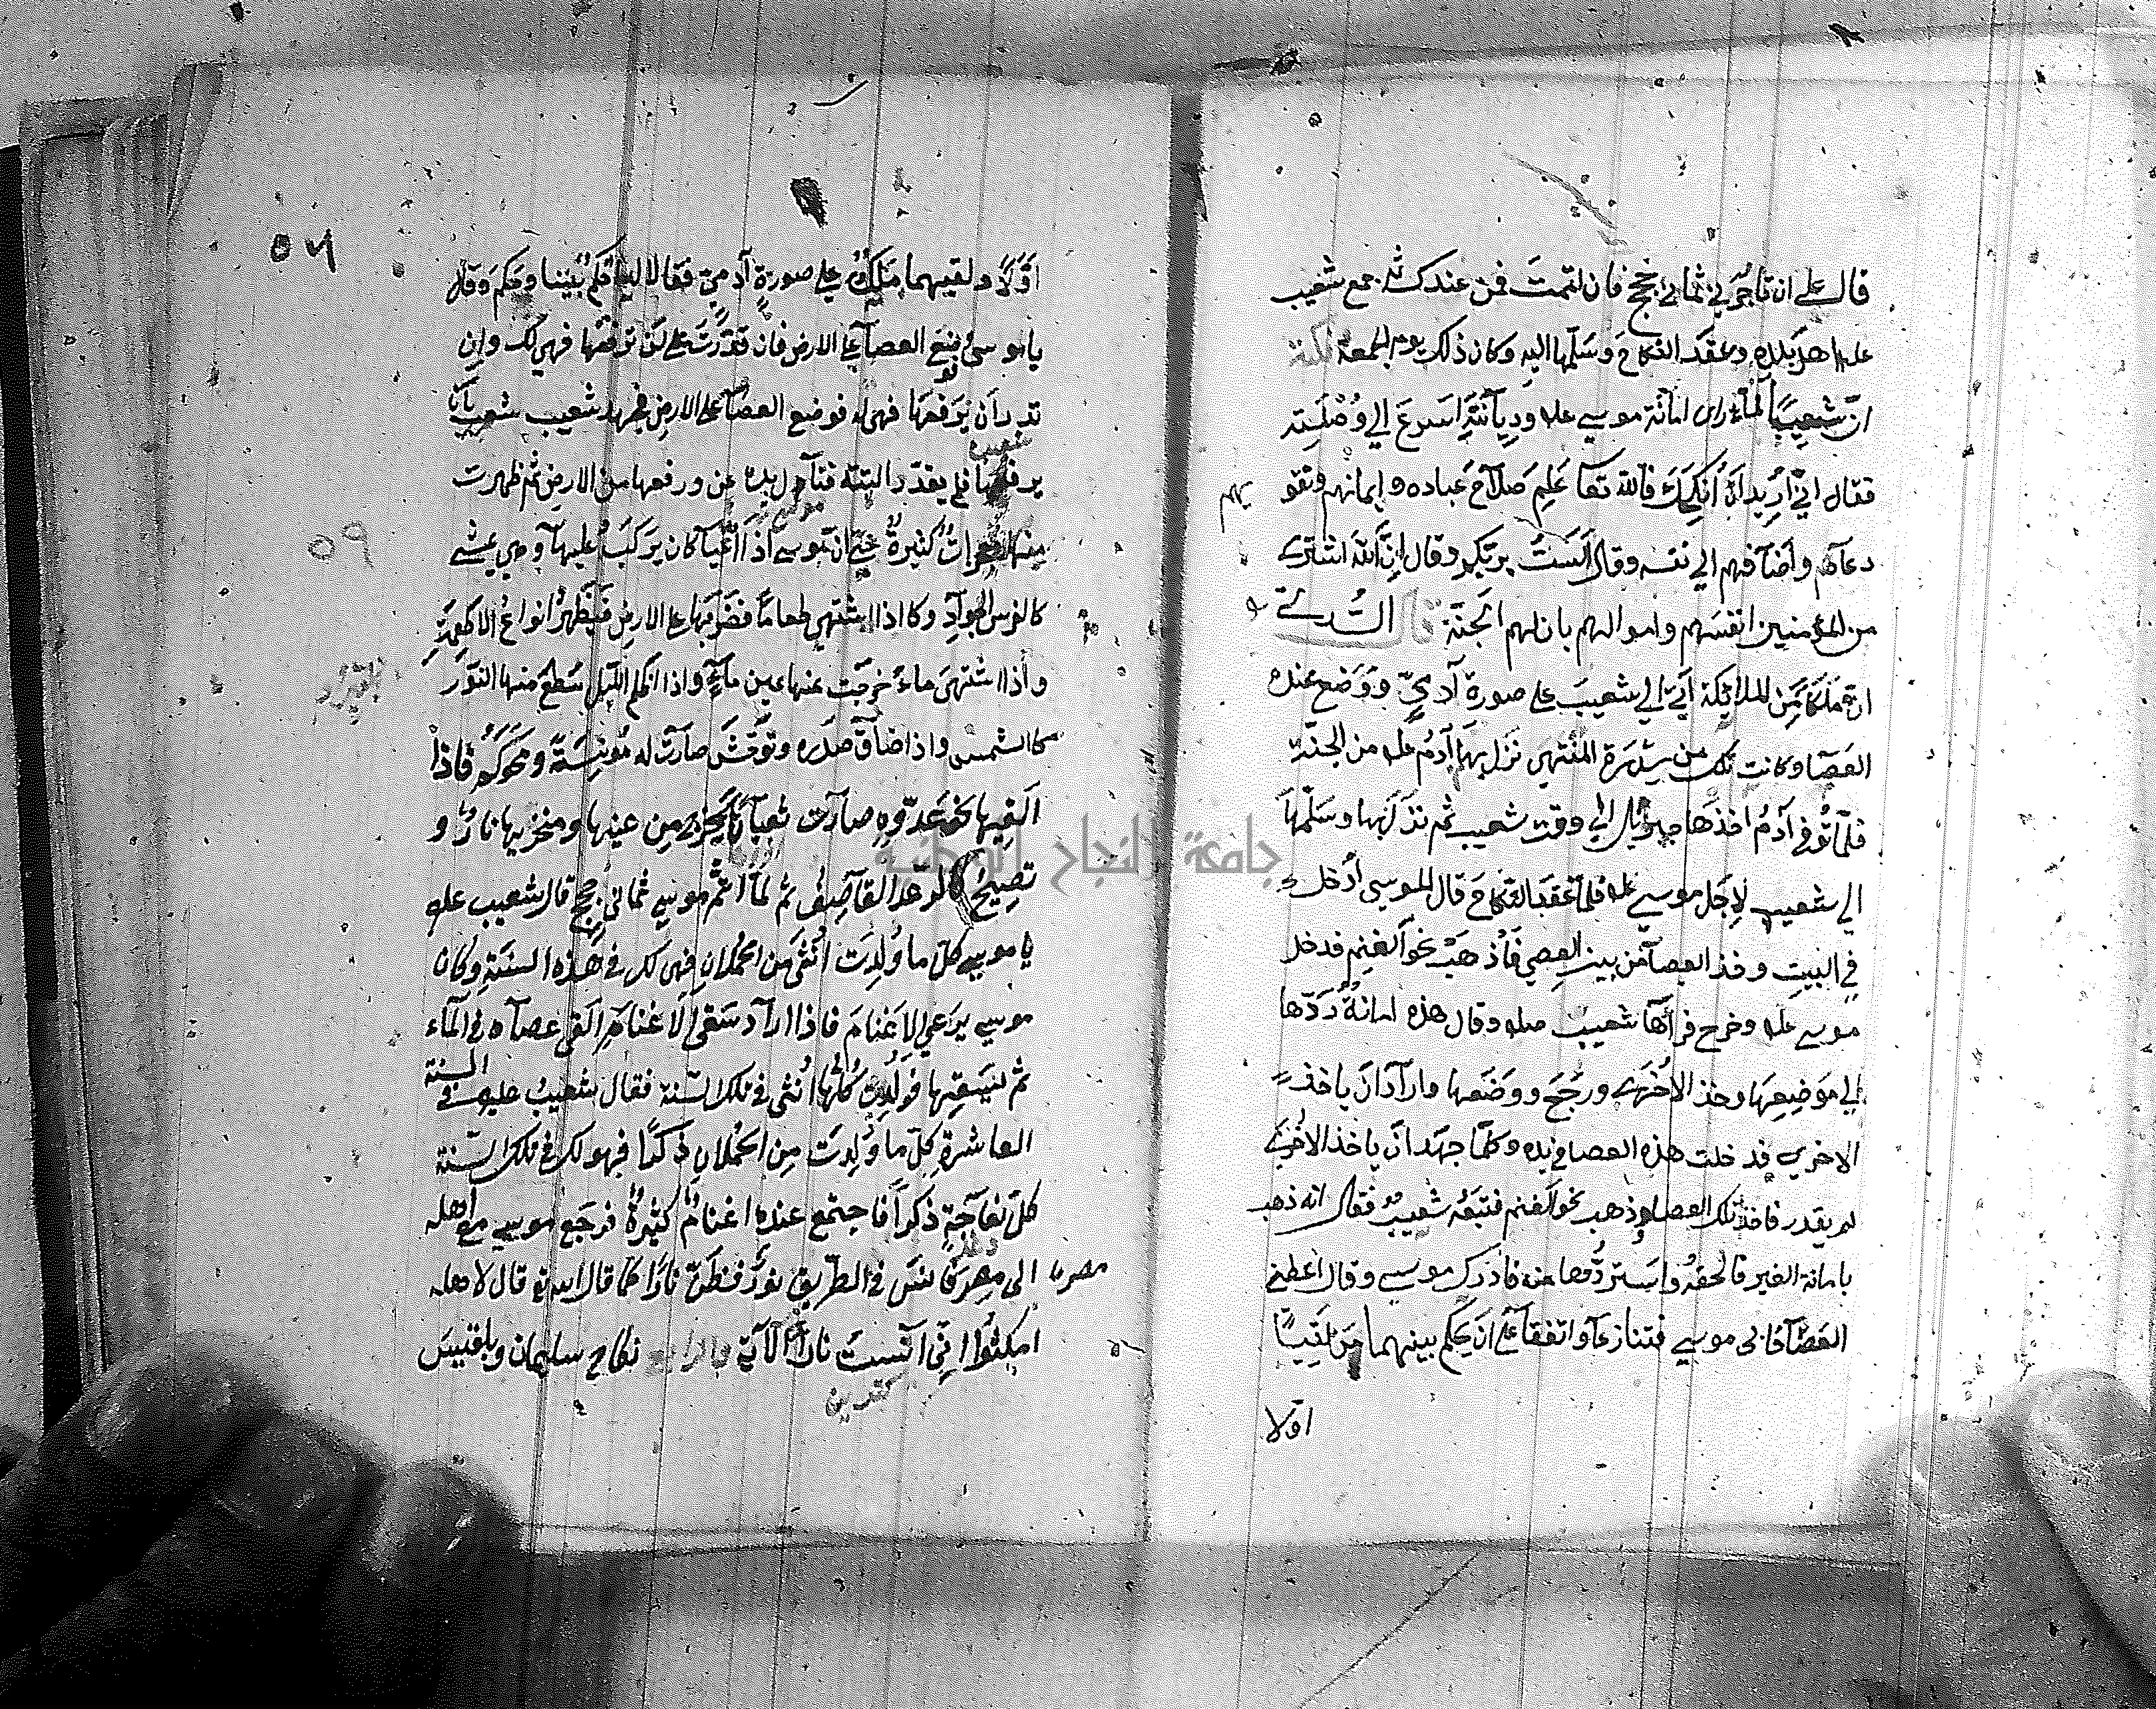 قال على ان تأجرني ثماني حجج فان اتممت فمن عندك ثم جمع شعيب
عليه اهل بلده وعقد النكاح وسلمها اليه وكان ذلك يوم الجمعة
ان شعيبا لما رأى امانة موسى عليه وديانته اسرع الي وصلته
فقال اني اريد ان انكحك فالله تعا علم صلاح عباده وايمانهم وتقو
يهم
دعاهم واضافهم الي نفسه وقال الست بربكم وقال ان الله اشترى
من المؤمنين انفسهم واموالهم بان لهم الجنة قال السدي
ان ملكا من الملائكة اتي الي شعيب على صورة آدمي ووضع عنده
العصا وكانت تلك من سدرة المنتهى نزل بها آدم عليه من الجنة
فلما توفي آدم اخذها جبرائل الي وقت شعيب ثم نزل بها وسلمها
الي شعيب لاجل موسى عليه فلما عقد النكاح قال لموسى ادخل
في البيت وخذ العصا من بين العصي فاذهب نحو الغنم فدخل
موسى عليه وخرج فرآها شعيب وقال هذه امانة ردها
الي موضعها وخذ الاخرى ورجع ووضعها واراد ان ياخذ
الاخرى فدخلت هذه العصا في يده وكلما جهد ان ياخذ الاخرى
لم يقدر فاخذ تلك العصا وذهب نحو الغنم فتبعه شعيب فقال انه ذهب
بامانة الغير فالحقه واستردها منه فادرك موسى وقال اعطني
العصا فابى موسى فتنازعا واتفقا على ان يحكم بينهما من لقيا
اولا
٥٦
اولا ولقيهما ملك على صورة آدمي فقالا له احكم بيننا وحكم وقال
يا موسى ضع العصا على الارض فان قدرت على ان ترفعها فهي لك وان
قدر ان يرفعها فهي له فوضع العصا على الارض فجهد شعيب بان
يرفعها فلم يقدر البتة فتناول يده ورفعها من الارض ثم ظهرت
منها معجزات كثيرة حتى ان موسى اذا اعيا كان يركب عليها وهي يمشى
٥٩
كالفرس الجواد وكا اذا اشتهى طعاما فضربها على الارض فيظهر انواع الاطعمة
واذا اشتهى ماء خرجت عنها عين ماء واذا اظلم الليل سطع منها النور
كالشمس واذا ضاق صدره وتوحش صارت له مونسة ومحركة فاذا
القيها نحو عدوه صارت ثعبانا يخرج من عينها ومنخريها نار و
تصيح كالرعد القاصف ثم لما اتم موسى ثماني حجج قال شعيب عليه
يا موسى كل ما ولدت انثى من الحملان فهي لك في هذه السنة وكان
موسى يرعى الاغنام فاذا اراد سقى الاغنام القى عصاه في الماء
ثم يسقيها فولدت كلها انثى في تلك السنة فقال شعيب عليه في السنة
العاشرة كل ما ولدت من الحملان ذكرا فهو لك في تلك السنة
كل نعاجه ذكرا فاجتمع عنده اغنام كثيرة فرجع موسى مع اهله
الى مصر فآنس في الطريق نور فظن نارا كما قال الله تع قال لاهله
امكثوا اني آنست نارا الآية نكاح سليمان وبلقيس
جامعة النجاح الوطنية